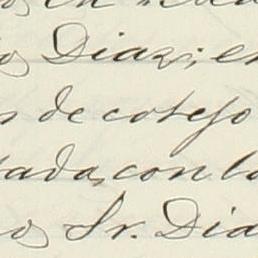 Diaz; en
de cotejo
tada, con la
Sr. Dia